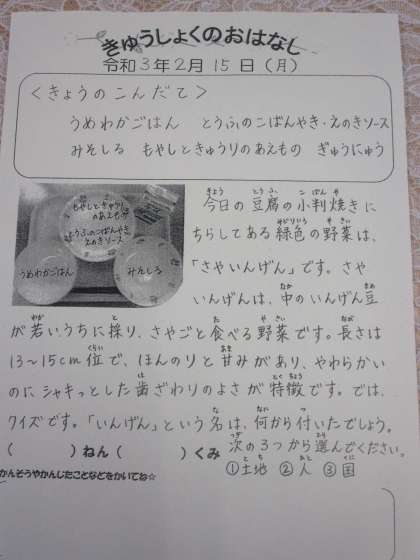 きゅうしょくのおはなし
令和3年2月15日(月)
<きょうのこんだて>
うめわかごはん とうふのこばんやき・えのきソース
みそしる もやしときゅうりのあえもの ぎゅうにゅう
もやしときゅうりのあえもの
とうふのこばんやきえのきソース
うめわかごはん
みそしる
今日の豆腐の小判焼きに
ちらしてある緑色の野菜は、
「さやいんげん」です。さや
いんげんは、中のいんげん豆
が若いうちに採り、さやごと食べる野菜です。長さは
13~15cm位で、ほんのりと甘みがあり、やわらかい
のにシャキっとした歯ざわりのよさが特徴です。では、
クイズです。「いんげん」という名は、何から付いたでしょう。
( )ねん( )くみ 次の3つから選んでください。
かんそうやかんじたことなどをかいてね☆ ①土地 ②人 ③国